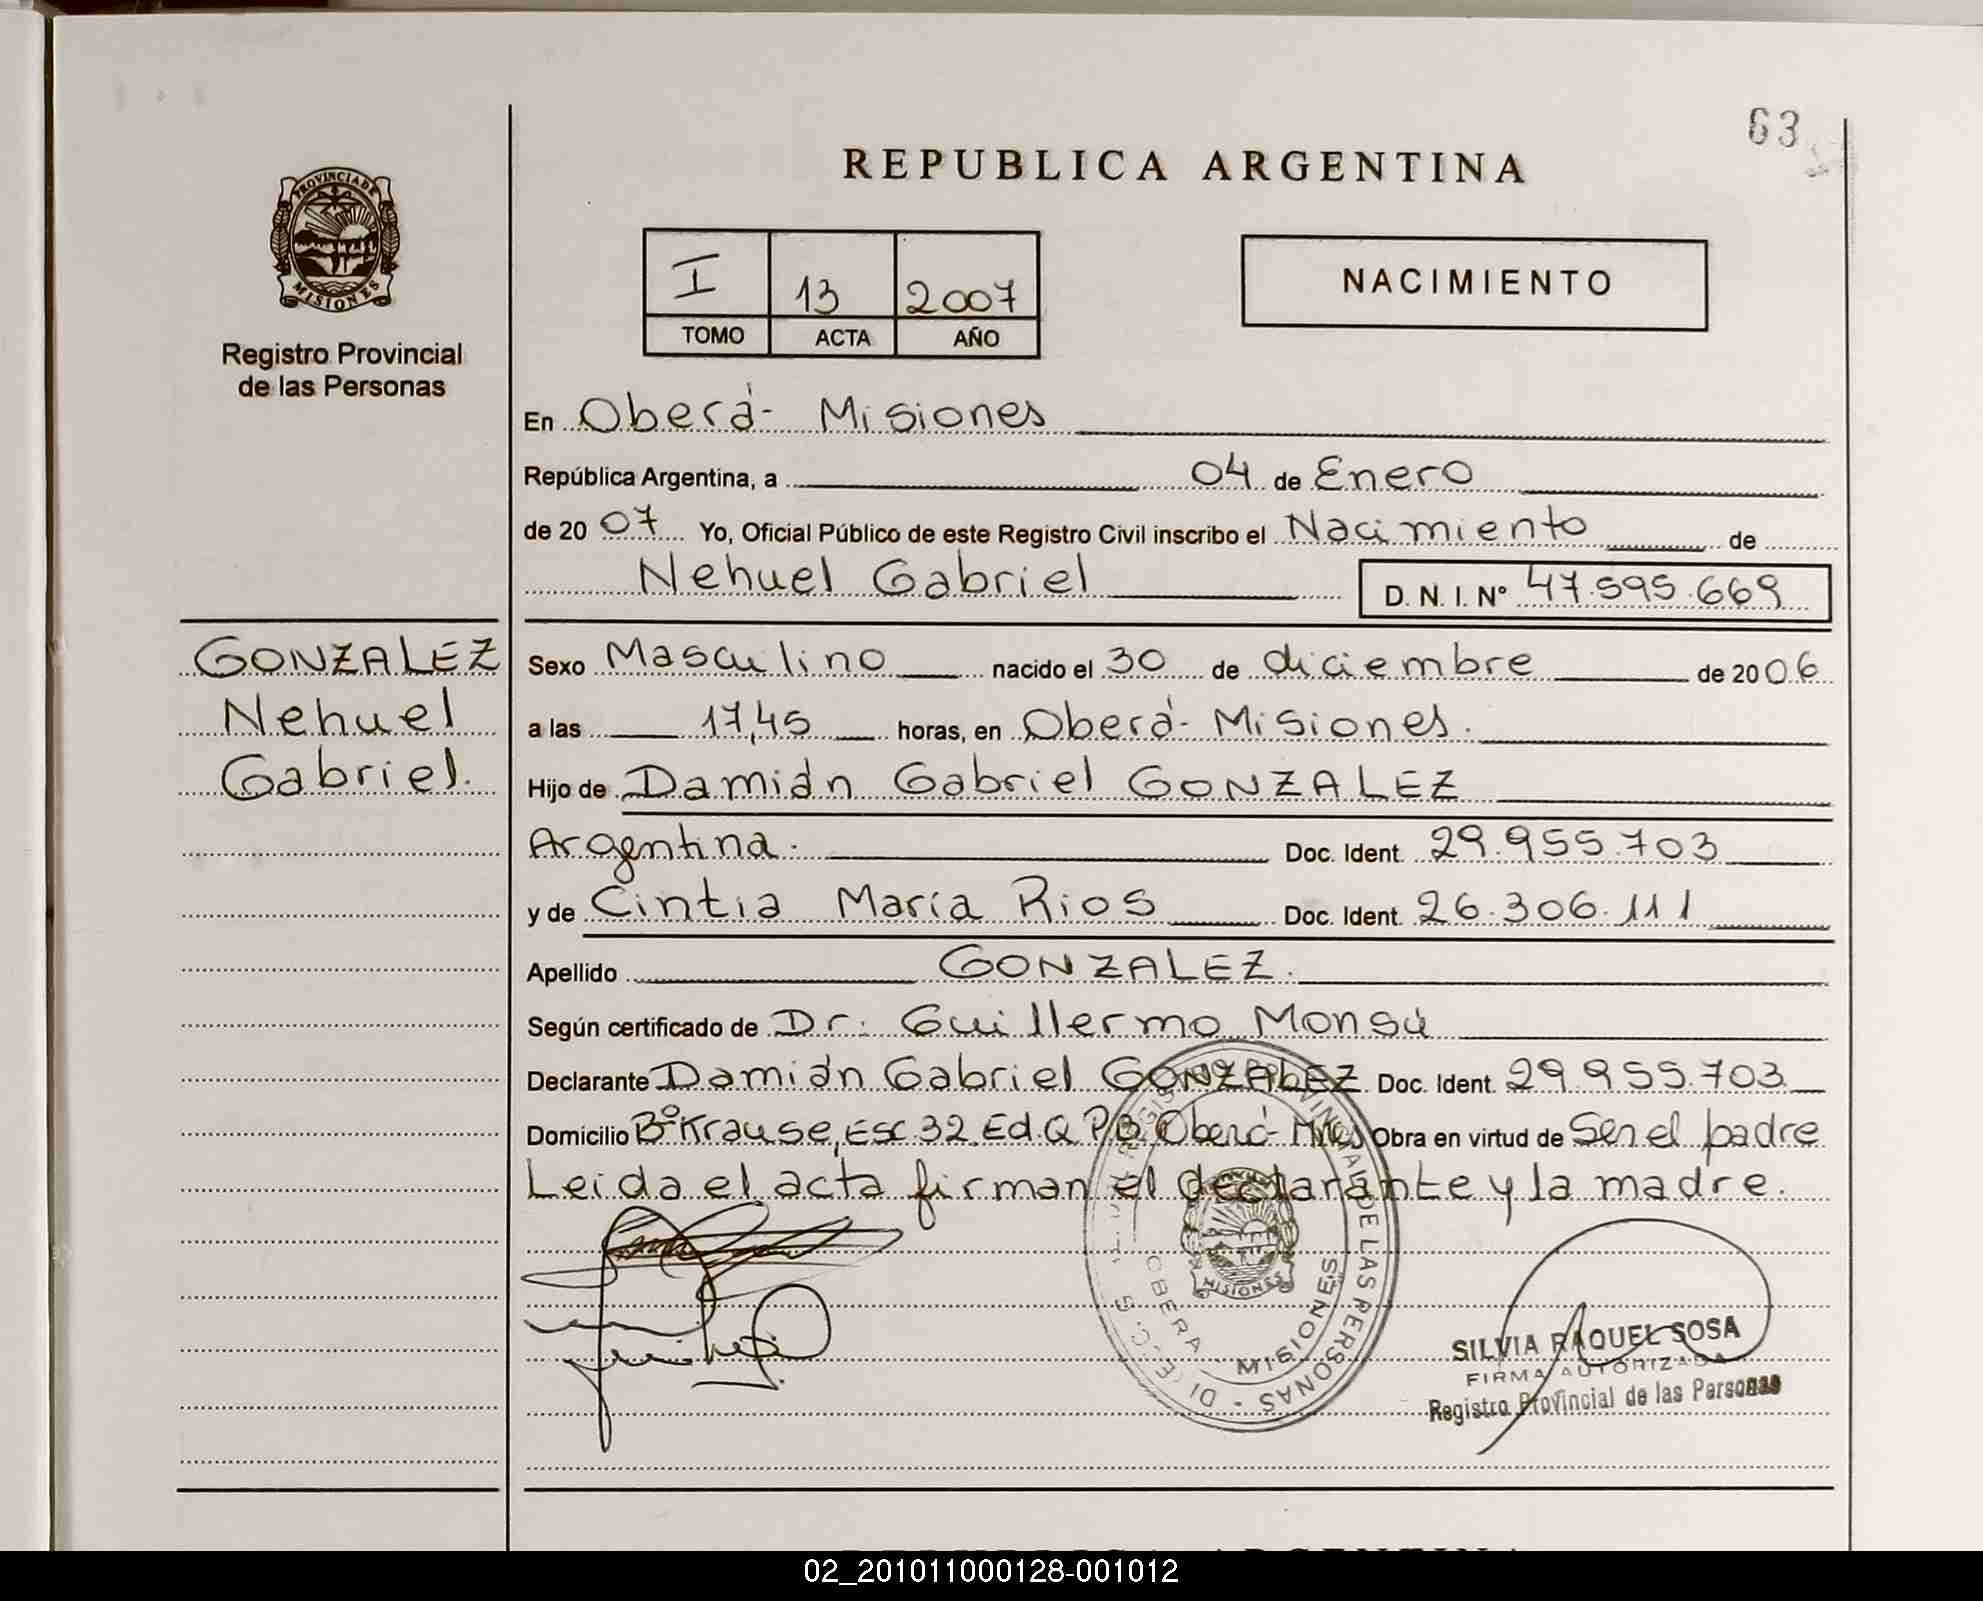 63
REPUBLICA ARGENTINA
PROVINCIA DE
MISIONES
Registro Provincial
de las Personas
I 13 2007
TOMO ACTA AÑO
NACIMIENTO
En Oberá- Misiones
República Argentina, a 04 de Enero
de 20 07 Yo, Oficial Público de este Registro Civil inscribo el Nacimiento de
Nehuel Gabriel D. N. I. Nº 47.595.669
GONZALEZ
Nehuel
Gabriel.
Sexo Masculino nacido el 30 de diciembre de 20 06
a las 17,45 horas, en Oberá- Misiones.
Hijo de Damián Gabriel GONZALEZ
Argentina. Doc. Ident. 29.955.703
y de Cintia María Rios Doc. Ident. 26.306.111
Apellido GONZALEZ.
Según certificado de Dr. Guillermo Monsú
Declarante Damián Gabriel GONZALEZ Doc. Ident. 29.955.703
Domicilio Bº Krause, Esc 32 Ed. Q PB Oberá- Mnes Obra en virtud de Ser el padre
Leida el acta firman el declarante y la madre.
MISIONES
OBERA - MISIONES
DE LAS PERSONAS
SILVIA RAQUEL SOSA
FIRMA AUTORIZADA
Registro Provincial de las Personas
02_201011000128-001012